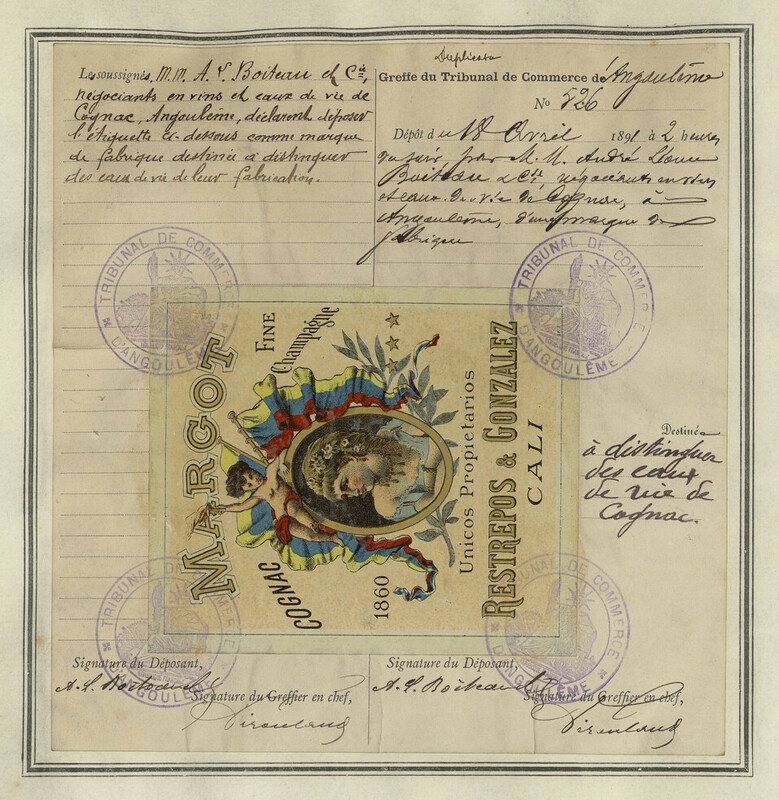 Les soussignés, M.M. A. L. Boiteau et Cie,
négociants en vins et eaux de vie de
Cognac, Angoulême, déclarent déposer
l'étiquette ci-dessous comme marque
de fabrique destinée à distinguer
des eaux de vie de leur fabrication.
Duplicata
Greffe du Tribunal de Commerce de Angoulême
No 526
Dépôt du 18 Avril 1891 à 2 heures
du soir, par M.M. André
Boiteau & Cie, négociants en vins
et eaux de vie de Cognac, à
Angoulême, d'une marque de
fabrique
TRIBUNAL DE COMMERCE
D'ANGOULÊME
TRIBUNAL DE COMMERCE
D'ANGOULÊME
MARGOT
FINE
Champagne
COGNAC
1860
Unicos Propietarios
RESTREPOS & GONZALEZ
CALI
Destinée
à distinguer
des eaux
de vie de
Cognac.
TRIBUNAL DE COMMERCE
D'ANGOULÊME
TRIBUNAL DE COMMERCE
D'ANGOULÊME
Signature du Déposant,
A. L. Boiteau & Cie
Signature du Greffier en chef,
Signature du Déposant,
A. L. Boiteau
Signature du Greffier en chef,